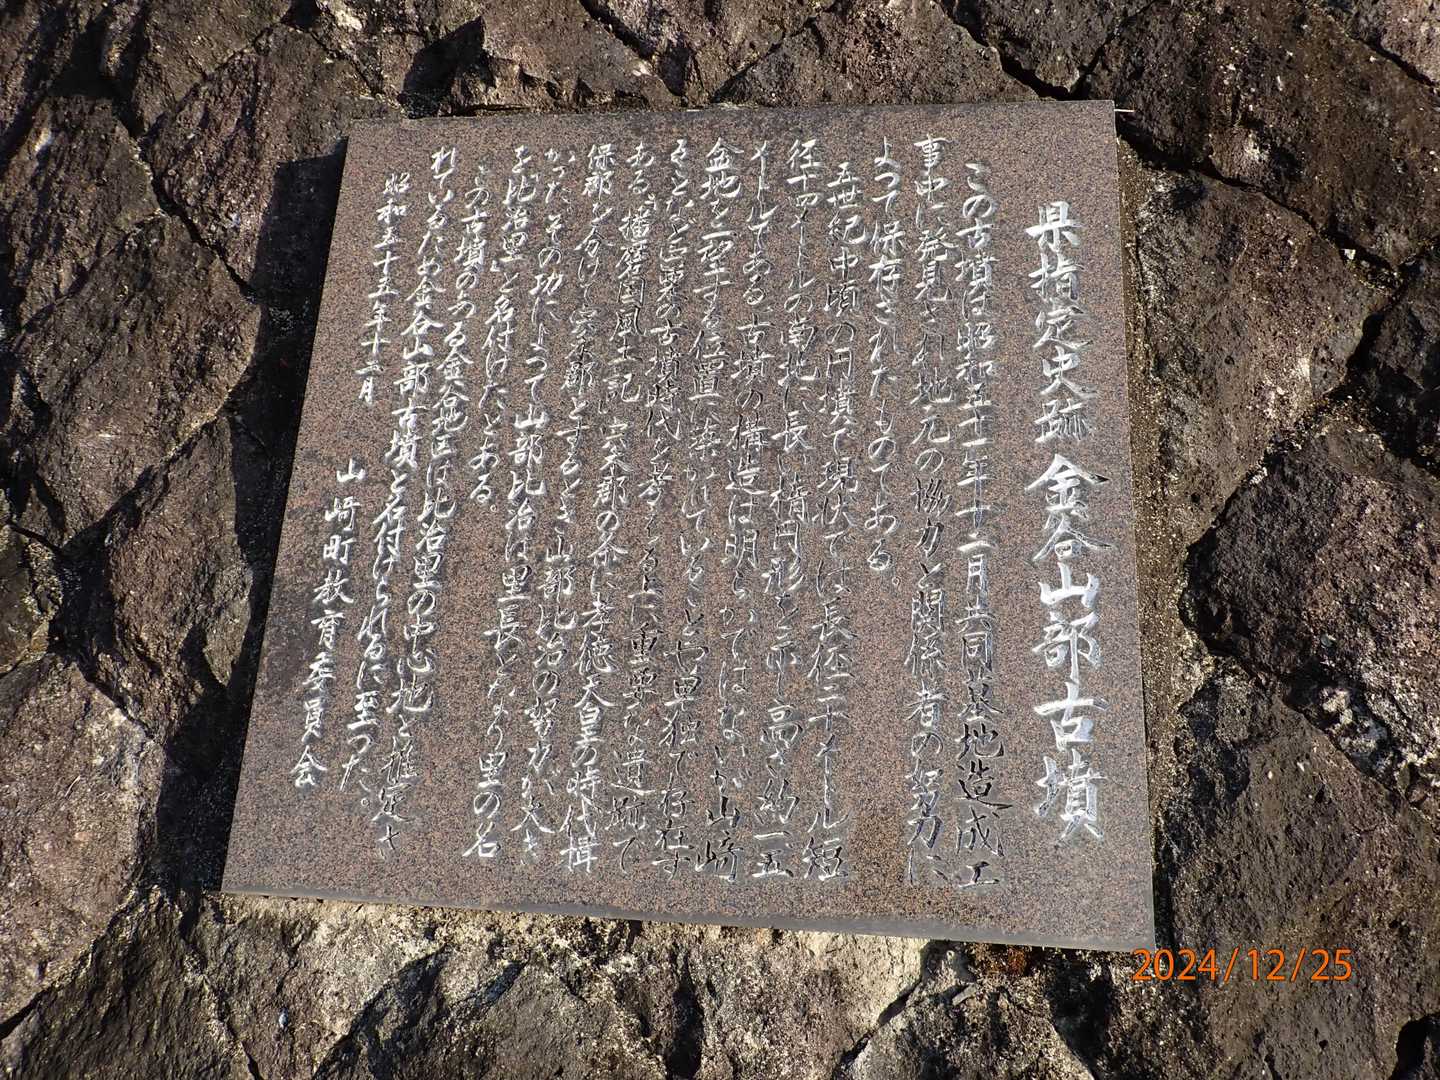 県指定史跡 金谷山部古墳
この古墳は昭和五十一年十二月共同墓地造成工
事中に発見され地元の協力と関係者の努力に
よって保存されたものである。
五世紀中頃の円墳で現状では長径二十メートル短
径十四メートルの南北に長い楕円形を示し高さ約一・五
メートルである古墳の構造は明らかではないが山崎
盆地を一望する位置に築かれていることや単独で存在す
ることなど西播の古墳時代を考える上に重要な遺跡で
ある。「播磨国風土記」宍禾郡の条に孝徳天皇の時代揖
保郡を分けて宍禾郡とするとき山部比治の努力が大き
かった。その功によって山部比治は里長となり里の名
を「比治里」と名付けたとある。
この古墳のある金谷地区は比治里の中心地と推定さ
れているため金谷山部古墳と名付けられるに至った。
昭和五十五年十二月
山崎町教育委員会
2024/12/25